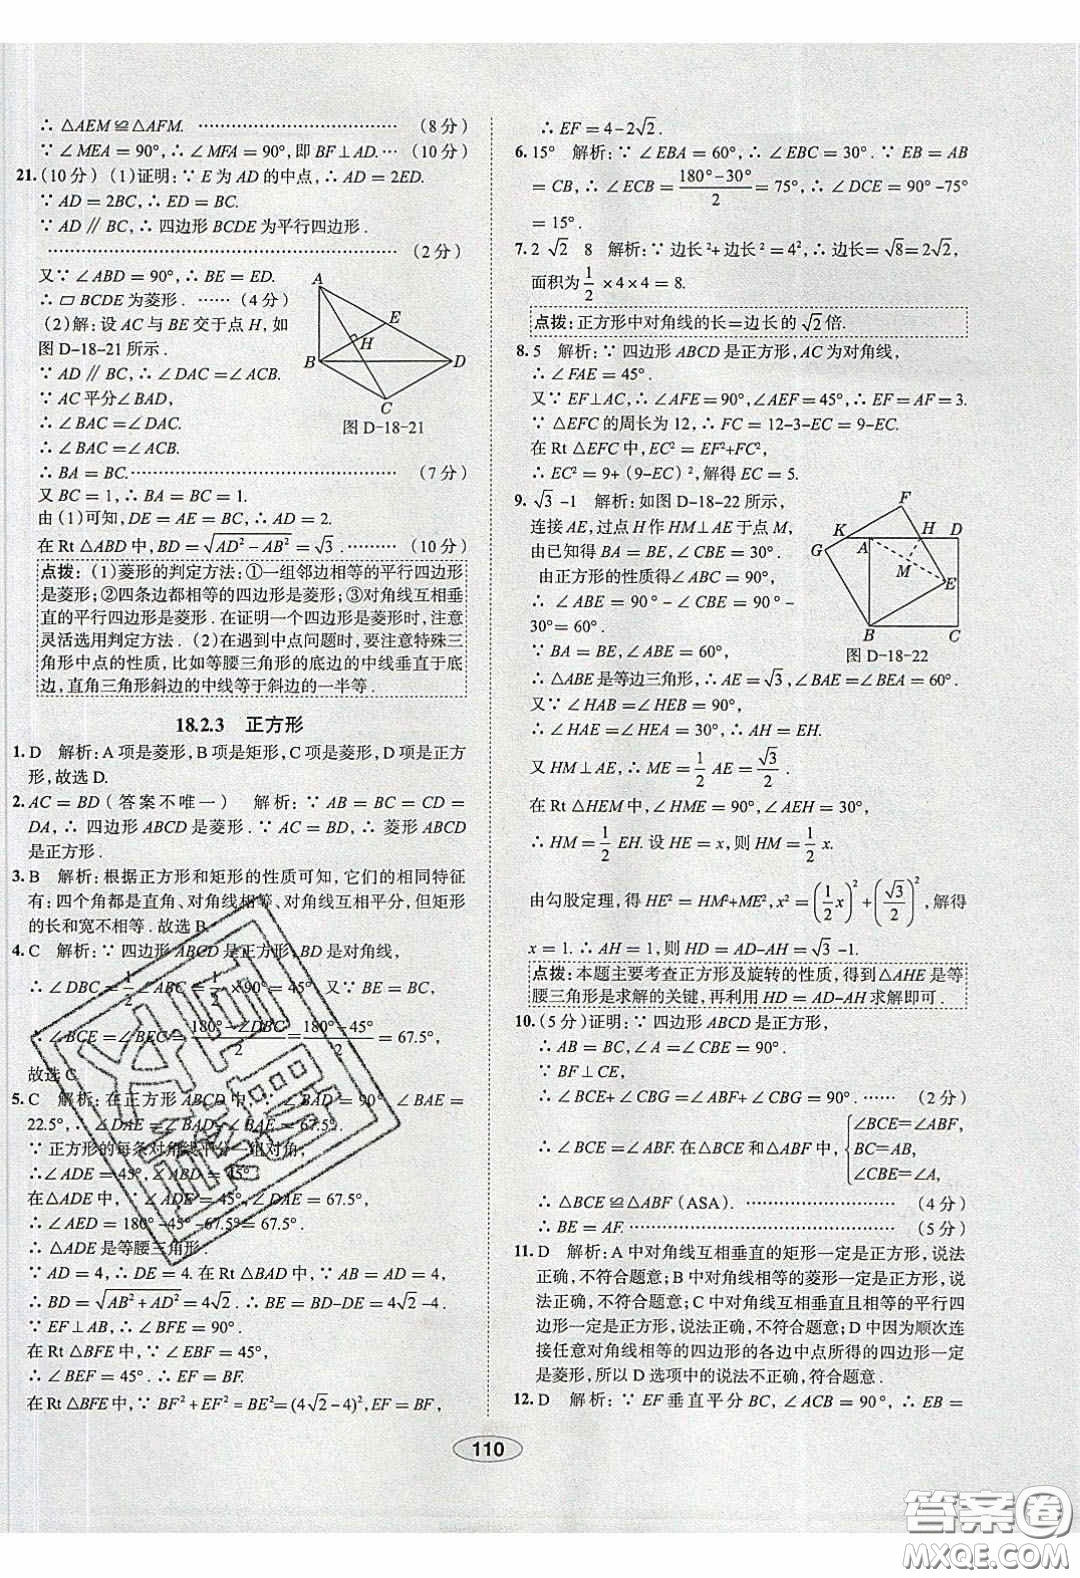 ∴ △AEM≌△AFM. ……………………………（8分）
∵ ∠MEA＝90°，∴ ∠MFA＝90°，即 BF⊥AD.…（10分）
21.（10分）（1）证明：∵ E为AD的中点，∴ AD＝2ED.
∵ AD＝2BC，∴ ED＝BC.
∵ AD∥BC，∴ 四边形BCDE为平行四边形.
……………………………………………………（2分）
又∵ ∠ABD＝90°，∴ BE＝ED.
∴ ▱BCDE为菱形. ……（4分）
（2）解：设AC与BE交于点H，如
图D-18-21所示.
∵ AD∥BC，∴ ∠DAC＝∠ACB.
∵ AC平分∠BAD，
∴ ∠BAC＝∠DAC.
∴ ∠BAC＝∠ACB.
A
E
H
B
D
C
图D-18-21
∴ BA＝BC.………………………………………（7分）
又BC＝1，∴ BA＝BC＝1.
由（1）可知，DE＝AE＝BC，∴ AD＝2.
在Rt△ABD中，BD＝√(AD²－AB²)＝√3. ………（10分）
点拨：（1）菱形的判定方法：①一组邻边相等的平行四边形
是菱形；②四条边都相等的四边形是菱形；③对角线互相垂
直的平行四边形是菱形.在证明一个四边形是菱形时，注意
灵活选用判定方法.（2）在遇到中点问题时，要注意特殊三
角形中点的性质，比如等腰三角形的底边的中线垂直于底
边，直角三角形斜边的中线等于斜边的一半等.
18.2.3 正方形
1. D 解析：A项是菱形，B项是矩形，C项是菱形，D项是正方
形，故选D.
2. AC＝BD（答案不唯一） 解析：∵ AB＝BC＝CD＝
DA，∴ 四边形ABCD是菱形.∵ AC＝BD，∴ 菱形ABCD
是正方形.
3. B 解析：根据正方形和矩形的性质可知，它们的相同特征
有：四个角都是直角、对角线相等、对角线互相平分，但矩形
的长和宽不相等.故选B.
4. C 解析：∵ 四边形ABCD是正方形，BD是对角线，
∴ ∠DBC＝1/2×90°＝45°.又∵ BE＝BC，
∴ ∠BCE＝∠BEC＝(180°－∠DBC)/2＝(180°－45°)/2＝67.5°，
故选C.
5. C 解析：在正方形ABCD中，∵ ∠BAD＝90°，∠BAE＝
22.5°，∴ ∠DAE＝∠BAD－∠BAE＝67.5°.
∵ 正方形的每条对角线平分一组对角，
∴ ∠ADE＝45°.
在△ADE中，∵ ∠ADE＝45°，∠DAE＝67.5°，
∴ ∠AED＝180°－45°－67.5°＝67.5°.
∴ △ADE是等腰三角形.
∵ AD＝4，∴ DE＝4.在Rt△BAD中，∵ AB＝AD＝4，
∴ BD＝√(AB²＋AD²)＝4√2.∴ BE＝BD－DE＝4√2－4.
∵ EF⊥AB，∴ ∠BFE＝90°.
在Rt△BFE中，∵ ∠EBF＝45°，
∴ ∠BEF＝45°.∴ BF＝EF.
在Rt△BFE中，∵ BF²＋EF²＝BE²＝(4√2－4)²，BF＝EF，
∴ EF＝4－2√2.
6. 15° 解析：∵ ∠EBA＝60°，∴ ∠EBC＝30°.∵ EB＝AB
＝CB，∴ ∠ECB＝(180°－30°)/2＝75°，∴ ∠DCE＝90°－75°
＝15°.
7. 2√2 8 解析：∵ 边长²＋边长²＝4²，∴ 边长＝√8＝2√2，
面积为1/2×4×4＝8.
点拨：正方形中对角线的长＝边长的√2倍.
8. 5 解析：∵ 四边形ABCD是正方形，AC为对角线，
∴ ∠FAE＝45°.
又∵ EF⊥AC，∴ ∠AFE＝90°，∠AEF＝45°，∴ EF＝AF＝3.
∵ △EFC的周长为12，∴ FC＝12－3－EC＝9－EC.
在Rt△EFC中，EC²＝EF²＋FC²，
∴ EC²＝9＋(9－EC)²，解得EC＝5.
9. √3－1 解析：如图D-18-22所示，
连接AE，过点H作HM⊥AE于点M，
由已知得BA＝BE，∠CBE＝30°.
由正方形的性质得∠ABC＝90°，
∴ ∠ABE＝90°－∠CBE＝90°－
30°＝60°.
F
K
A
H
D
G
M
E
B
C
图D-18-22
∵ BA＝BE，∠ABE＝60°，
∴ △ABE是等边三角形，∴ AE＝√3，∠BAE＝∠BEA＝60°.
又∵ ∠HAB＝∠HEB＝90°，
∴ ∠HAE＝∠HEA＝30°，∴ AH＝EH.
又HM⊥AE，∴ ME＝1/2AE＝√3/2.
在Rt△HEM中，∠HME＝90°，∠AEH＝30°，
∴ HM＝1/2EH.设HE＝x，则HM＝1/2x.
由勾股定理，得HE²＝HM²＋ME²，x²＝(1/2x)²＋(√3/2)²，解得
x＝1.∴ AH＝1，则HD＝AD－AH＝√3－1.
点拨：本题主要考查正方形及旋转的性质，得到△AHE是等
腰三角形是求解的关键，再利用HD＝AD－AH求解即可.
10.（5分）证明：∵ 四边形ABCD是正方形，
∴ AB＝BC，∠A＝∠CBE＝90°.
∵ BF⊥CE，
∴ ∠BCE＋∠CBG＝∠ABF＋∠CBG＝90°.……（2分）
∴ ∠BCE＝∠ABF.在△BCE和△ABF中，{∠BCE＝∠ABF，
BC＝AB，
∠CBE＝∠A，
∴ △BCE≌△ABF（ASA）. ……………………（4分）
∴ BE＝AF.………………………………………（5分）
11. D 解析：A中对角线互相垂直的矩形一定是正方形，说法
正确，不符合题意；B中对角线相等的菱形一定是正方形，说
法正确，不符合题意；C中对角线互相垂直且相等的平行四
边形一定是正方形，说法正确，不符合题意；D中因为顺次连
接任意对角线相等的四边形的各边中点所得的四边形一定
是菱形，所以D选项中的说法不正确，符合题意.
12. D 解析：∵ EF垂直平分BC，∠ACB＝90°，∴ EB＝
110
答案圈
MXQE.COM